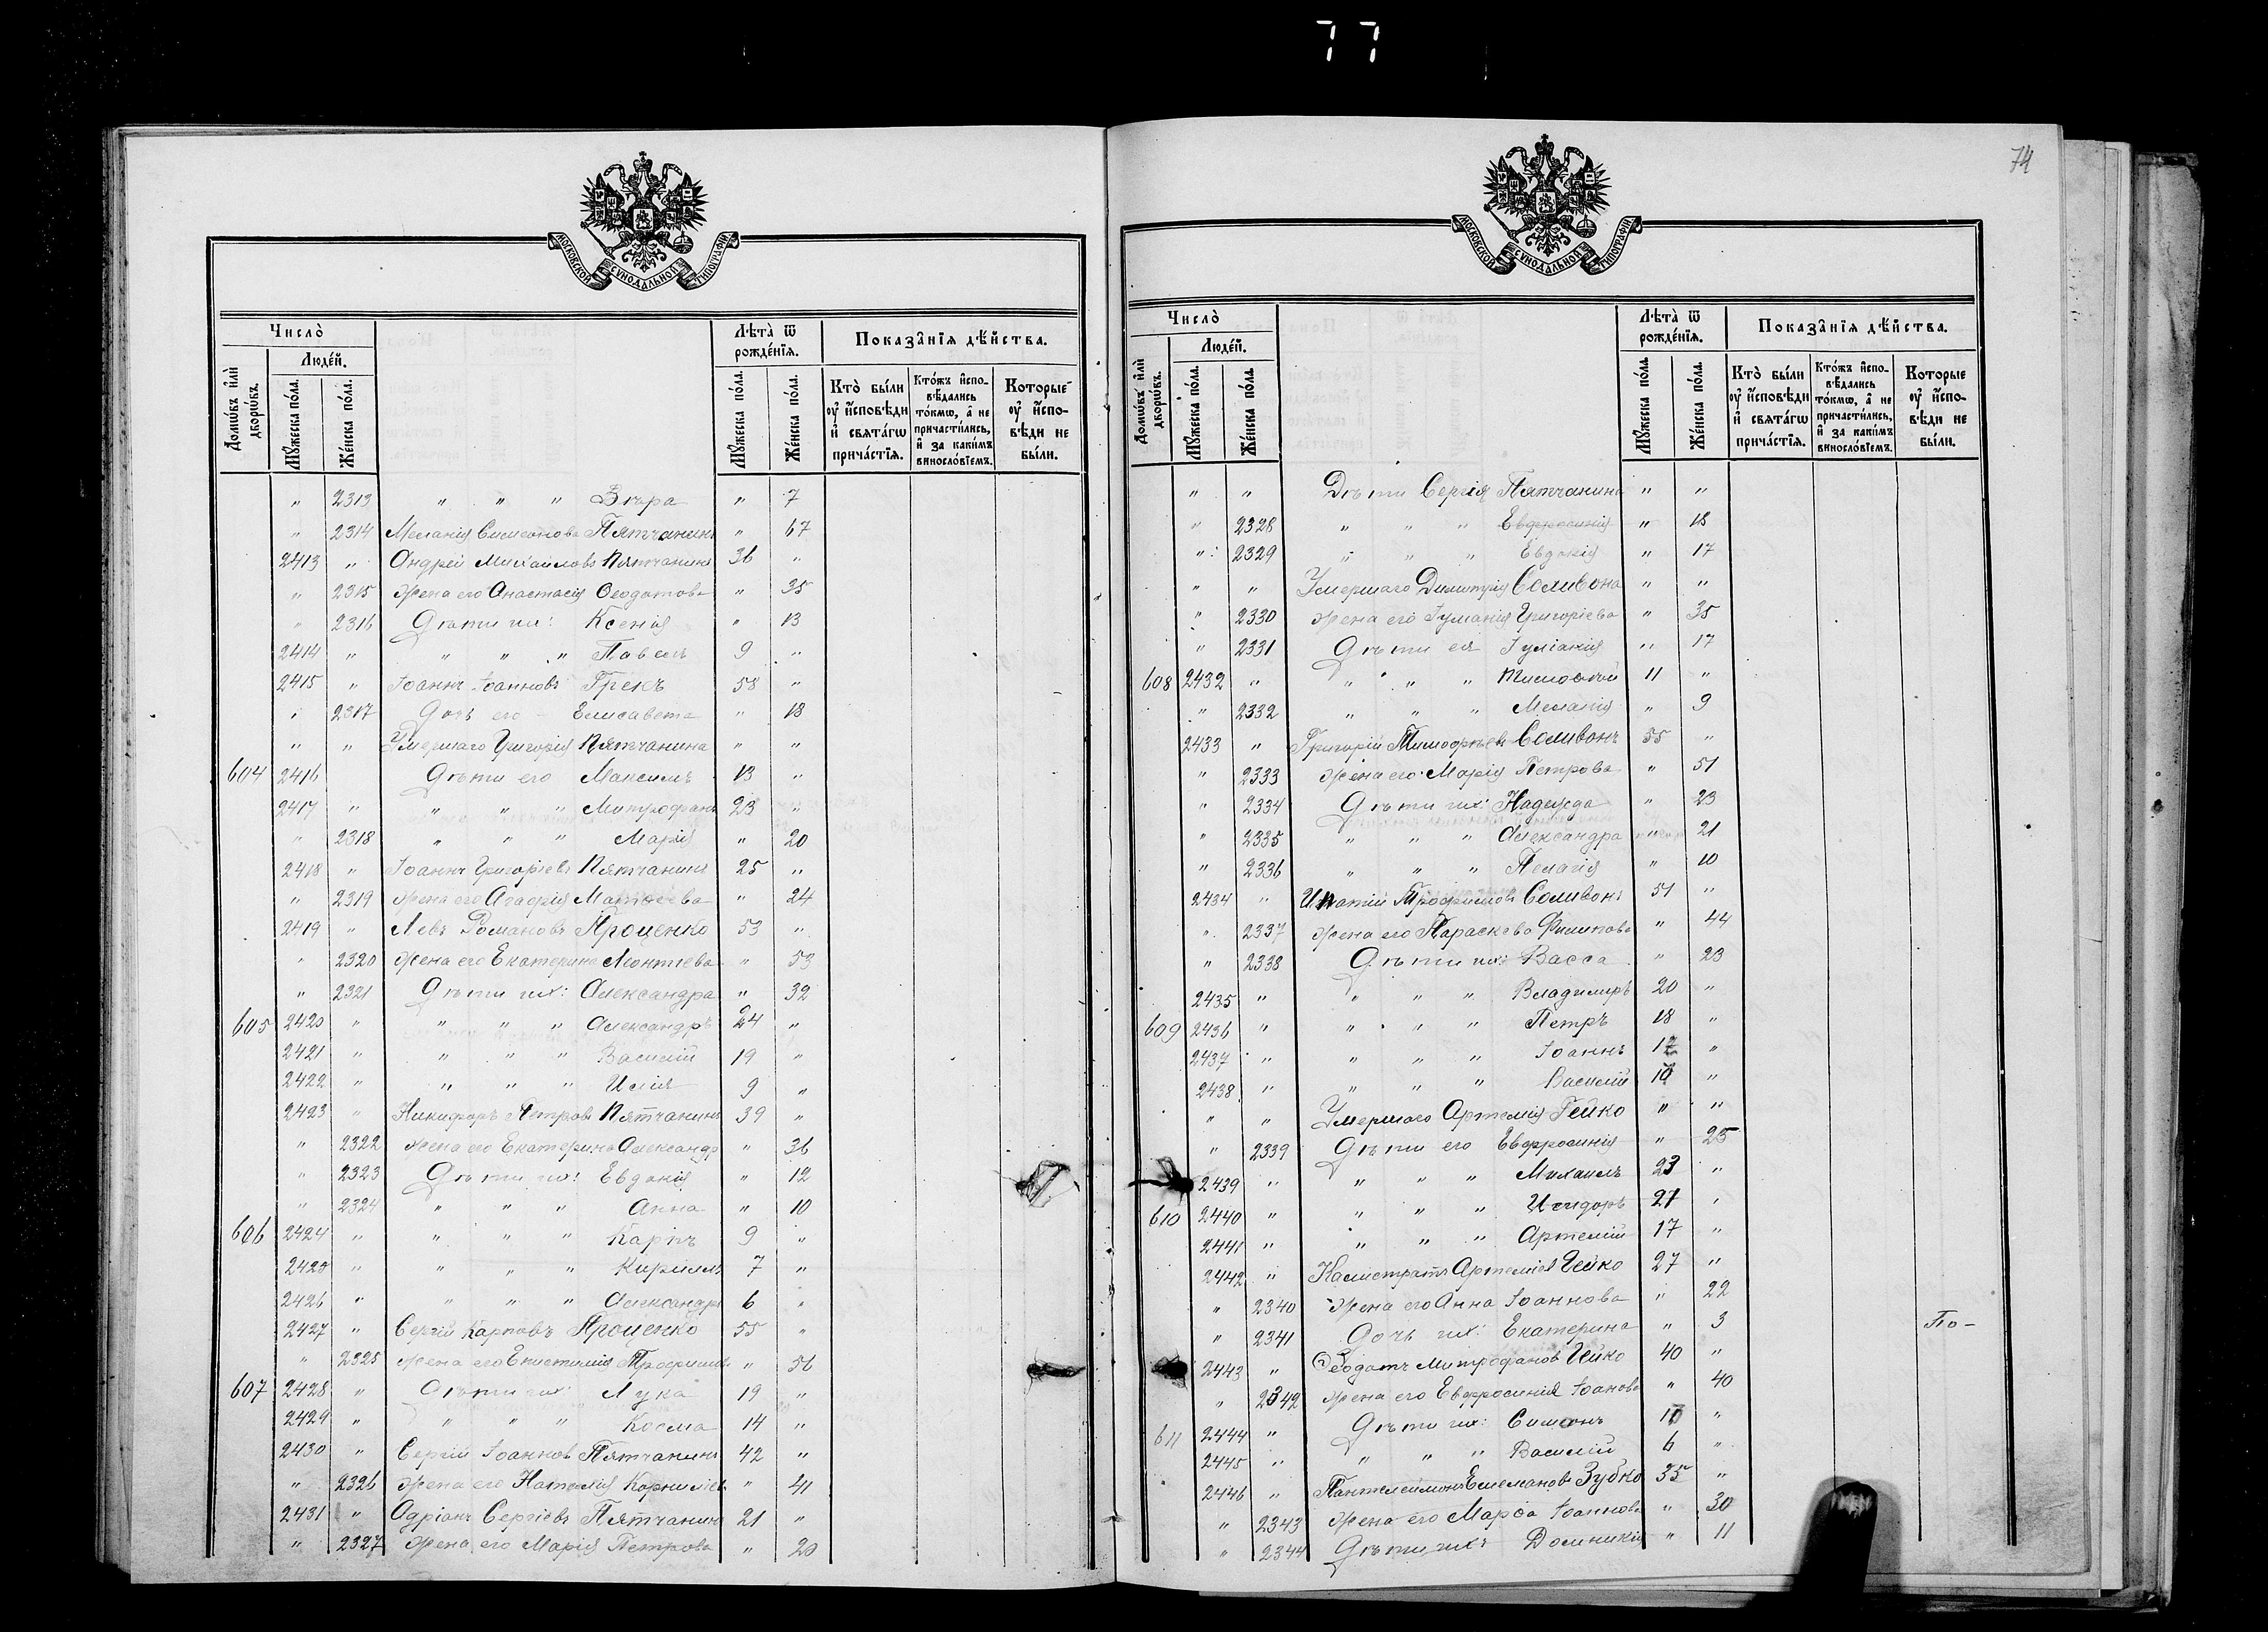 77
74
МОСКОВСКОЙ СѴНОДАЛЬНОЙ ТИПОГРАФІИ.
Число̀
Лѣта̀ ѿ рожде́нїѧ.
Показа̂нїѧ дѣ́йства.
Люде́й.
Домѡ́въ и҆лѝ дворѡ́въ.
Мꙋ́жеска по́ла.
Же́нска по́ла.
Мꙋ́жеска по́ла.
Же́нска по́ла.
Кто̀ бы́ли ᲂу҆ и҆сповѣди и҆ свѧта́гѡ прича́стїѧ.
Кто́жъ и҆сповѣдались то́кмѡ, а҆ не причасти́лись, и҆ за каки́мъ винослові́емъ.
Которые ᲂу҆ и҆сповѣди не бы́ли.
" 2313 " " " Вѣра " 7
" 2314 Меланія Симеонова Пятчанинъ " 67
2413 " Андрей Михайловъ Пятчанинъ 36 "
" 2315 Жена его Анастасія Ѳеодотова " 35
" 2316 Дѣти ихъ: Ксенія " 13
2414 " " " " Павелъ 9 "
2415 " Іоаннъ Іоанновъ Грекъ 58 "
" 2317 Дочь его Елисавета " 18
" " Умершаго Григорія Пятчанина " "
604 2416 Дѣти его Максимъ 13 "
2417 " " " " Митрофанъ 23 "
" 2318 " " " Марія " 20
2418 " Іоаннъ Григоріевъ Пятчанинъ 25 "
" 2319 Жена его Агафія Матѳеева " 24
2419 " Левъ Романовъ Проценко 53 "
" 2320 Жена его Екатерина Леонтіева " 53
" 2321 Дѣти ихъ: Александра " 32
605 2420 " " " " Александръ 24 "
2421 " " " " Василій 19 "
2422 " " " " Илія 9 "
2423 " Никифоръ Петровъ Пятчанинъ 39 "
" 2322 Жена его Екатерина Александр " 36
" 2323 Дѣти ихъ: Евдокія " 12
" 2324 " " " Анна " 10
606 2424 " " " " Карпъ 9 "
2425 " " " " Кириллъ 7 "
2426 " " " " Александръ 6 "
2427 " Сергій Карповъ Проценко 55 "
" 2325 Жена его Епистимія Трофимова " 56
607 2428 " Дѣти ихъ: Лука 19 "
2429 " " " " Косма 14 "
2430 " Сергій Іоанновъ Пятчанинъ 42 "
" 2326 Жена его Наталія Корниліев " 41
2431 " Адріанъ Сергіевъ Пятчанинъ 21 "
" 2327 Жена его Марія Петрова " 20
МОСКОВСКОЙ СѴНОДАЛЬНОЙ ТИПОГРАФІИ.
Число̀
Лѣта̀ ѿ рожде́нїѧ.
Показа̂нїѧ дѣ́йства.
Люде́й.
Домѡ́въ и҆лѝ дворѡ́въ.
Мꙋ́жеска по́ла.
Же́нска по́ла.
Мꙋ́жеска по́ла.
Же́нска по́ла.
Кто̀ бы́ли ᲂу҆ и҆сповѣди и҆ свѧта́гѡ прича́стїѧ.
Кто́жъ и҆сповѣдались то́кмѡ, а҆ не причасти́лись, и҆ за каки́мъ винослові́емъ.
Которые ᲂу҆ и҆сповѣди не бы́ли.
" " Дѣти Сергія Пятчанина " "
" 2328 " " " Евфросинія " 18
" 2329 " " " Евдокія " 17
" " Умершаго Димитрія Соливона " "
" 2330 Жена его Іуліанія Григоріева " 35
" 2331 Дѣти ея Іуліанія " 17
608 2432 " " " " Тимоѳей 11 "
" 2332 " " " Меланія " 9
2433 " Григорій Тимофѣевъ Соливонъ 55 "
" 2333 Жена его Марія Петрова " 51
" 2334 Дѣти ихъ: Надежда " 23
" 2335 " " " Александра " 21
" 2336 " " " Пелагія " 10
2434 " Ипатій Трофимовъ Соливонъ 51 "
" 2337 Жена его Параскева Филипова " 44
" 2338 Дѣти ихъ: Васса " 23
2435 " " " " Владимиръ 20 "
609 2436 " " " " Петръ 18 "
2437 " " " " Іоаннъ 12 "
2438 " " " " Василій 10 "
" " Умершаго Артемія Гейко " "
" 2339 Дѣти его Евфросинія " 25
2439 " " " " Михаилъ 23 "
610 2440 " " " " Исидоръ 21 "
2441 " " " " Артемій 17 "
2442 " Калистратъ Артеміев Гейко 27 "
" 2340 Жена его Анна Іоаннова " 22
" 2341 Дочь ихъ: Екатерина " 3 По-
2443 " Ѳеодотъ Митрофановъ Гейко 40 "
" 2342 Жена его Евфросинія Іоанова " 40
611 2444 " Дѣти ихъ: Симеонъ 10 "
2445 " " " " Василій 6 "
2446 " Пантелеймонъ Емелианов Зубко 35 "
" 2343 Жена его Марѳа Іоаннова " 30
" 2344 Дѣти ихъ Домникія " 11